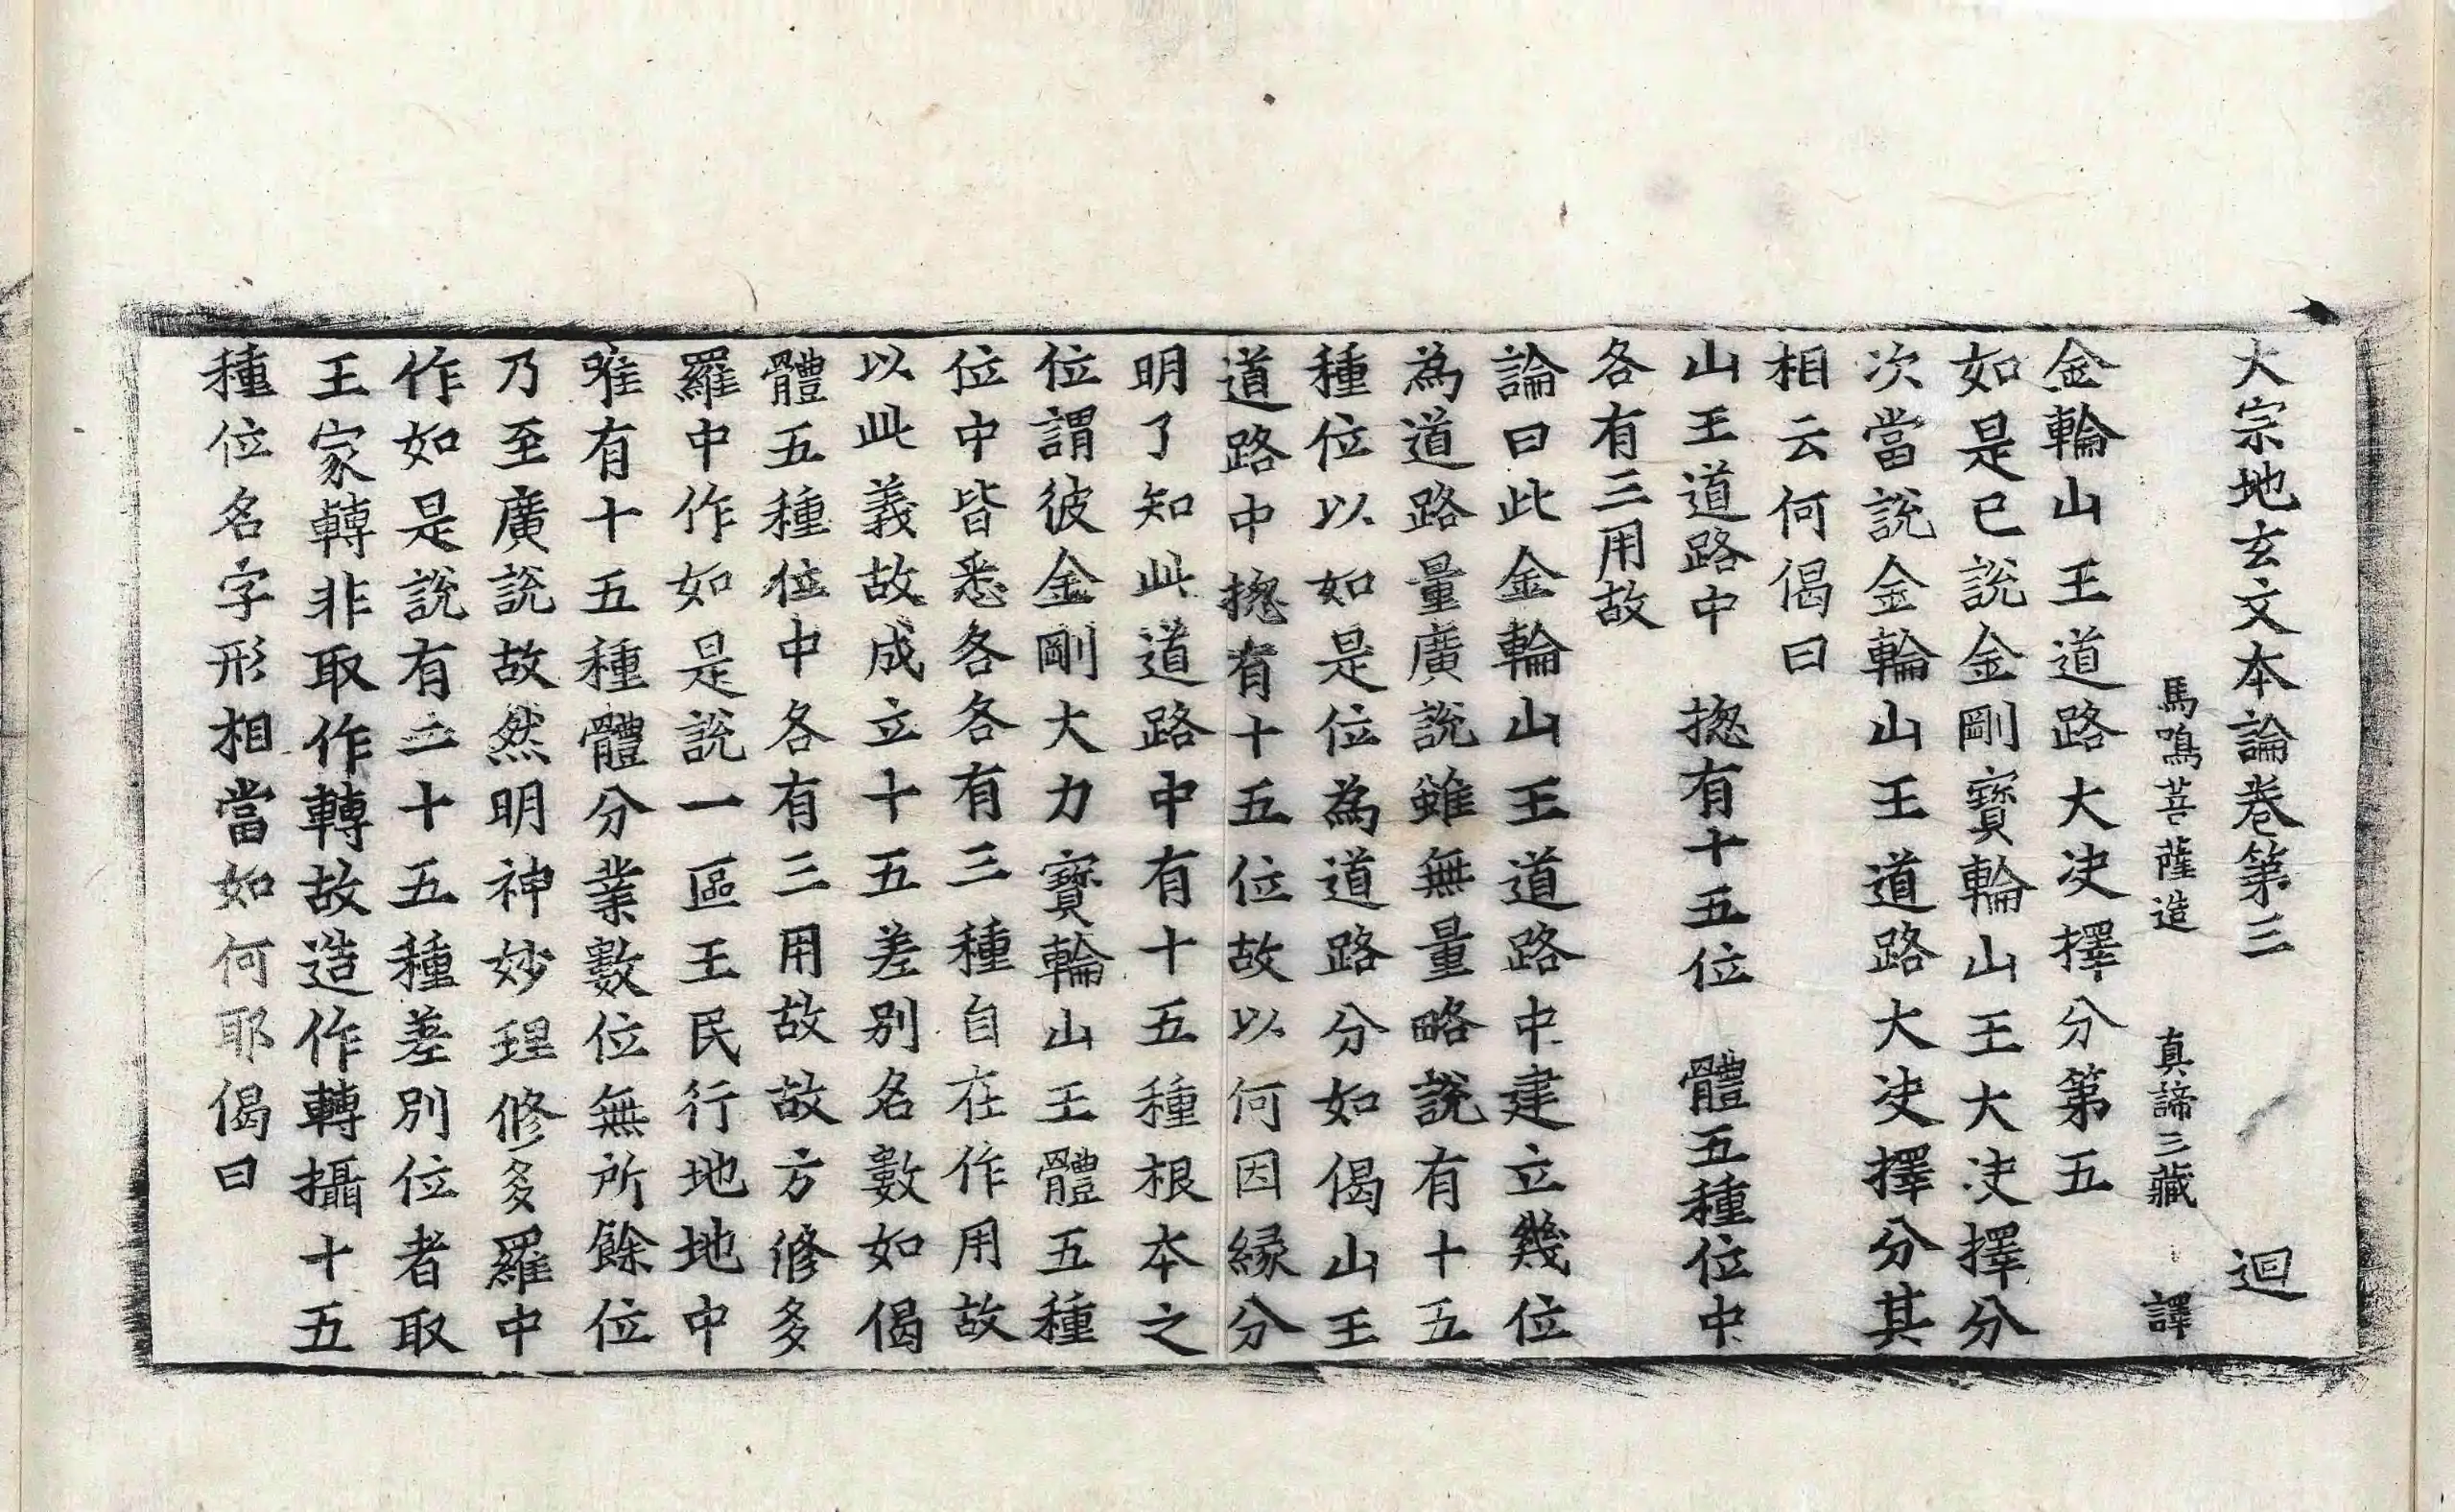 大宗地玄文本論卷第三　迴
馬鳴菩薩造　真諦三藏　譯
金輪山王道路大决擇分第五
如是已說金剛寶輪山王大决擇分
次當說金輪山王道路大决擇分其
相云何偈曰
山王道路中　摠有十五位　體五種位中
各有三用故
論曰此金輪山王道路中建立幾位
為道路量廣說雖無量略說有十五
種位以如是位為道路分如偈山王
道路中摠有十五位故以何因縁分
明了知此道路中有十五種根本之
位謂彼金剛大力寶輪山王體五種
位中皆悉各各有三種自在作用故
以此義故成立十五差別名數如偈
體五種位中各有三用故故方修多
羅中作如是說一區王民行地地中
唯有十五種體分業數位無所餘位
乃至廣說故然明神妙理修多羅中
作如是說有二十五種差別位者取
王家轉非取作轉故造作轉攝十五
種位名字形相當如何耶偈曰